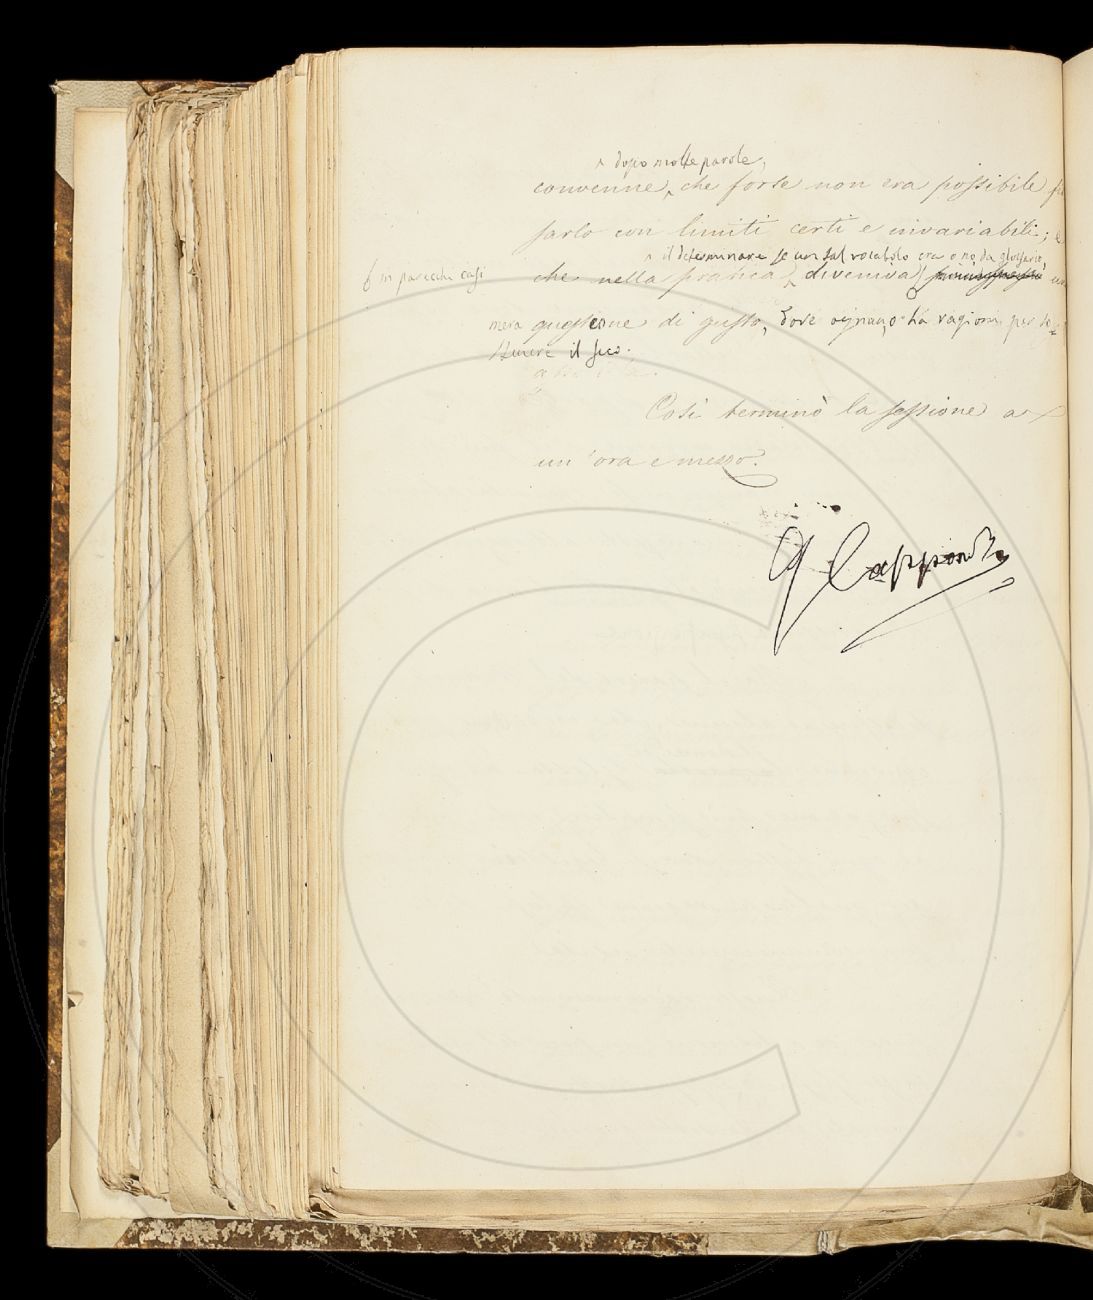 ^ dopo molte parole,
convenne, che forse non era possibile
sarlo con limiti certi e invariabili; e
^ il determinare se un tal vocabolo era o no da glossario,
in parecchi casi
che nella pratica, diveniva
mera questione di gusto, dove ognuno ha ragioni per so=
stenere il suo.
Così terminò la sessione a
un'ora e mezzo.
G Capponi